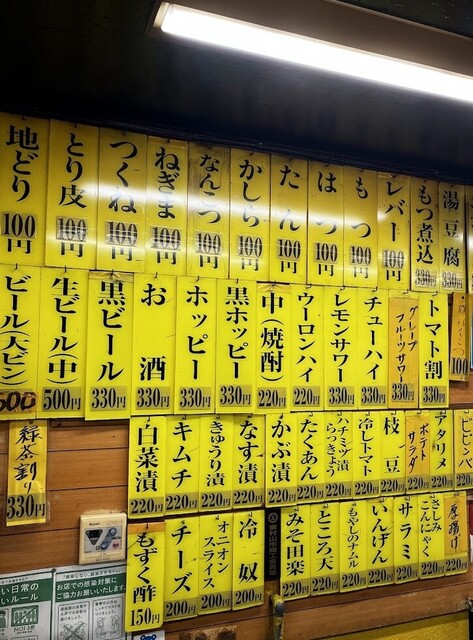 地どり 100円
とり皮 100円
つくね 100円
ねぎま 100円
なんこつ 100円
かしら 100円
たん 100円
はつ 100円
もつ 100円
レバー 100円
もつ煮込 330円
湯豆腐 330円
ビール(大ビン) 500
生ビール(中) 500円
黒ビール 330円
お酒 330円
ホッピー 330円
黒ホッピー 330円
中(焼酎) 220円
ウーロンハイ 220円
レモンサワー 330円
チューハイ 330円
グレープフルーツサワー 330円
トマト割 330円
100
緑茶割り 330円
白菜漬 220円
キムチ 220円
きゅうり漬 220円
なす漬 220円
かぶ漬 220円
たくあん 220円
ハチミツ漬らっきょう 220円
冷しトマト 220円
枝豆 220円
ポテトサラダ 220円
アタリメ 220円
もずく酢 150円
チーズ 200円
オニオンスライス 200円
冷奴 200円
みそ田楽 220円
ところ天 220円
もやしのナムル 220円
いんげん 220円
サラミ 220円
さしみこんにゃく 220円
厚揚げ
い日常の
いルール
お店での感染対策に
ご協力お願いします。